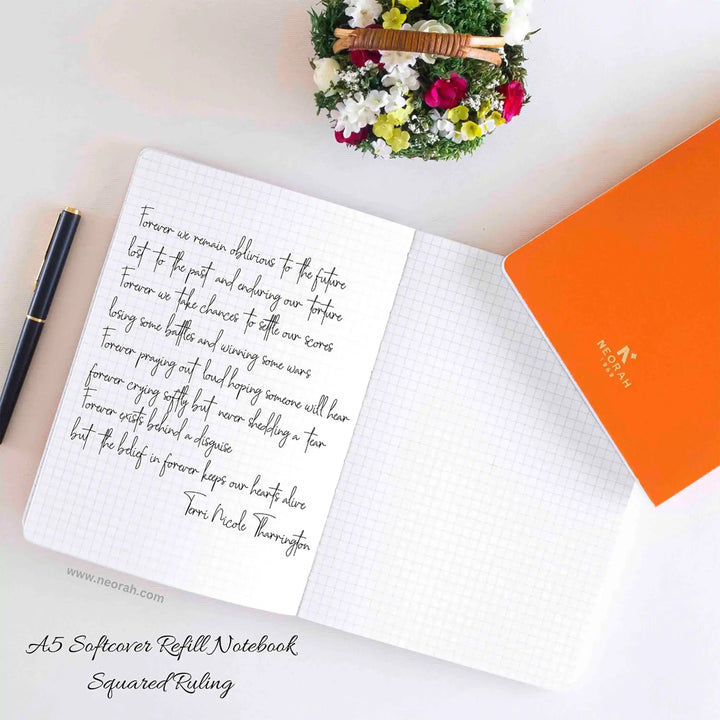 Forever we remain oblivious to the future
lost to the past and enduring our torture
Forever we take chances to settle our scores
losing some battles and winning some wars
Forever praying out loud hoping someone will hear
forever crying softly but never shedding a tear
Forever exists behind a disguise
but the belief in forever keeps our hearts alive
Terri Nicole Tharrington
NEORAH
www.neorah.com
A5 Softcover Refill Notebook
Squared Ruling